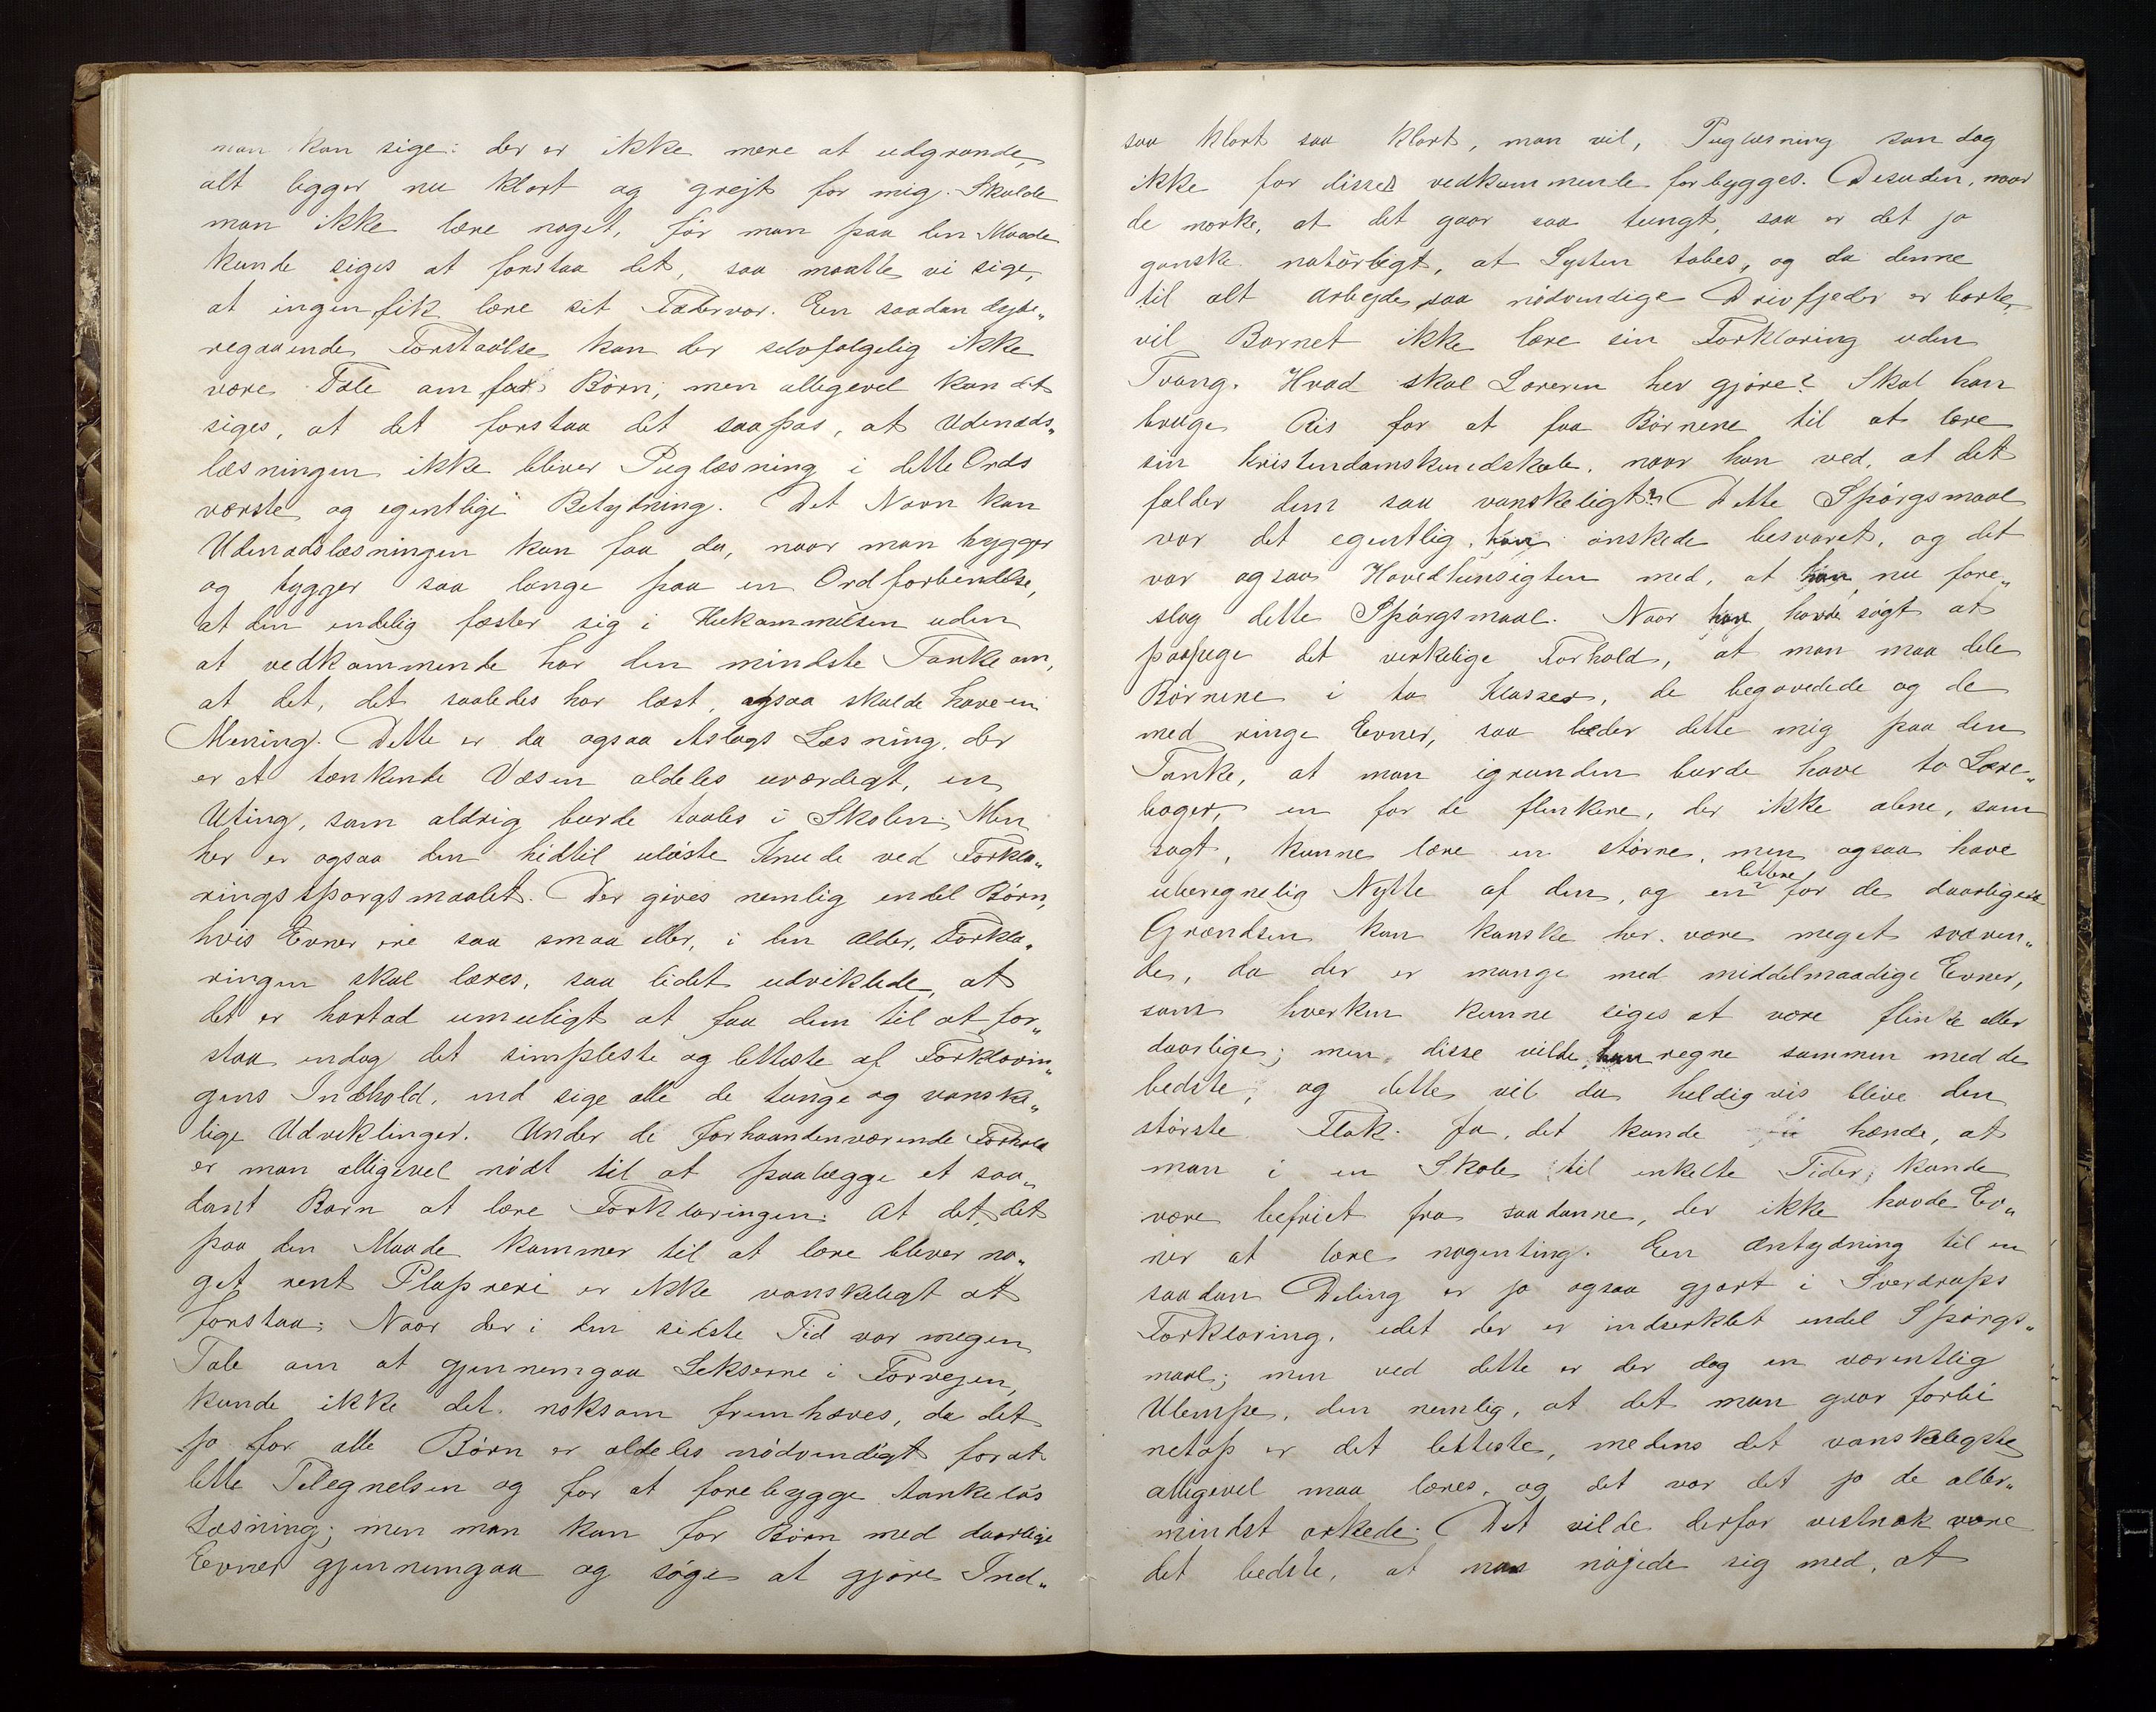 man kan sige: der er ikke mere at udgrunde,
alt ligger nu klart og grejt for mig. Skulde
man ikke lære noget, før man paa den Maade
kunde siges at forstaa det, saa maatte vi sige,
at ingen fik lære sit Fadervor. En saadan dybe„
regaaende Forstaaelse kan der selvfølgelig ikke
være Tale om for Børn; men alligevel kan det
siges, at det forstaa det saapas, at Udenads„
læsningen ikke bliver Puglæsning i dette Ords
værste og egentlige Betydning. Det Navn kan
Udenadslæsningen kan faa da, naar man tygger
og tygger saa længe paa en Ordforbindelse,
at den endelig fæster sig i Hukommelsen uden
at vedkommende har den mindste Tanke om,
at det, det saaledes har læst, ogsaa skulde have en
Mening. Dette er da ogsaa Aslags Læsning, der
er et tænkende Væsen aldeles uværdigt, en
Uting, som aldrig burde taales i Skolen; Men
her er ogsaa den hidtil uløste Knude ved Forkla„
ringsspørgsmaalet. Der gives nemlig endel Børn,
hvis Evner ere saa smaa eller, i den Alder, Forkla„
ringen skal læres, saa lidet udviklede, at
det er hartad umuligt at faa dem til at for„
staa endog det simpleste og letteste af Forklarin„
gens Indhold, end sige alle de tunge og vanske„
lige Udviklinger. Under de forhaandenværende Forhold
er man alligevel nødt til at paalægge et saa„
dant Barn at lære Forklaringen. At det, det
paa den Maade kommer til at lære bliver no„
get rent Plapreri er ikke vanskeligt at
forstaa. Naar der i den sidste Tid var megen
Tale om at gjennemgaa Lekserne i Forvejen,
kunde ikke det noksom fremhæves, da det
jo for alle Børn er aldeles nødvendigt for at
lette Tilegnelsen og for at forebygge tankeløs
Læsning; men man kan for Børn med daarlige
Evner gjennemgaa og søge at gjøre Ind„
saa klart saa klart, man vil, Puglæsning kan dog
ikke for disses vedkommende forbygges. Desuden, naar
de mærke, at det gaar saa tungt, saa er det jo
ganske naturligt, at Lysten tabes, og da denne
til alt Arbejde saa nødvendige Drivfjeder er borte,
vil Barnet ikke lære sin Forklaring uden
Tvang. Hvad skal Læreren her gjøre? Skal han
bruge Ris for at faa Børnene til at lære
sin Kristendomskundskab, naar han ved, at det
falder dem saa vanskeligt? Dette Spørgsmaal
var det egentlig han ønskede besvaret, og det
var ogsaa Hovedhensigten med, at han nu fore„
slog dette Spørgsmaal. Naar han havde søgt at
paapege det virkelige Forhold, at man maa dele
Børnene i to Klasser, de begavedede og de
med ringe Evner, saa leder dette mig paa den
Tanke, at man igrunden burde have to Lære„
bøger, en for de flinkere, der ikke alene, som
sagt, kunne lære en større, men ogsaa have
uberegnelig Nytte af den, og en lettere for de daarligere
Grændsen kan kanske her være meget svæven„
de, da der er mange med middelmaadige Evner,
som hverken kunne siges at være flinke eller
daarlige; men disse vilde han regne sammen med de
bedste, og dette vil da heldigvis blive den
største Flok. Ja, det kunde hænde, at
man i en Skole til enkelte Tider, kunde
være befriet fra saadanne, der ikke havde Ev„
ner at lære nogenting. Een Antydning til en
saadan Deling er jo ogsaa gjort i Sverdrups
Forklaring, idet der er indserklet endel Spørgs„
maal; men ved dette er der dog en væsentlig
Ulempe, den nemlig, at det man gaar forbi
netop er det letteste, medens det vanskeligste
alligevel maa læres, og det var det jo de aller„
mindst orkede. Det vilde derfor vistnok være
det bedste, at man nøjede sig med, at